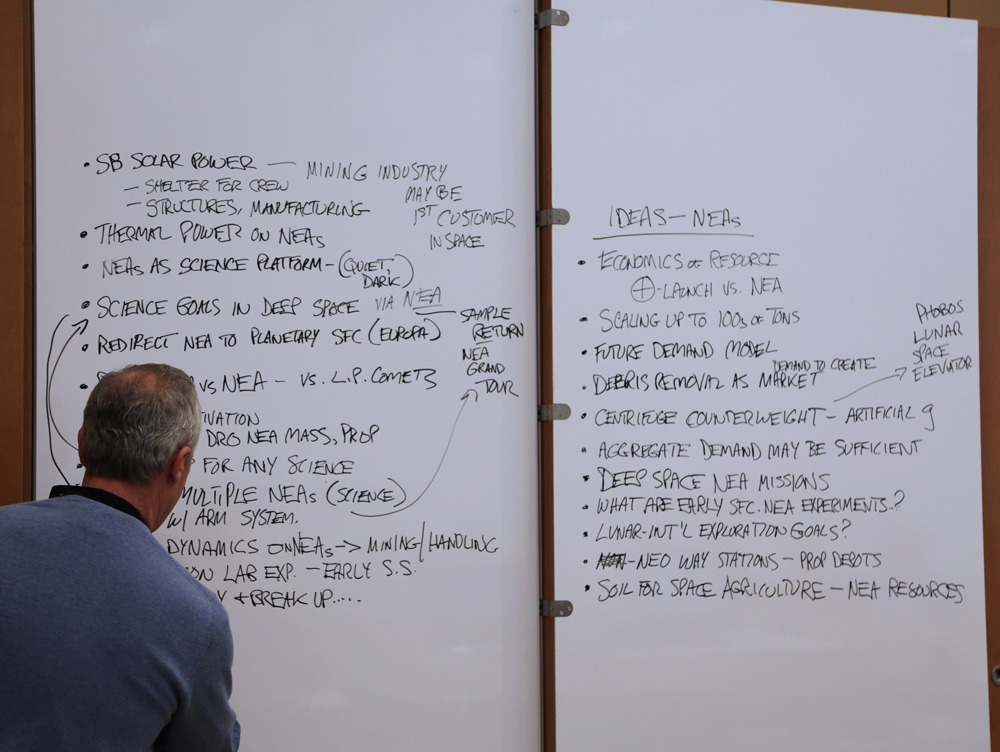 • SB SOLAR POWER — MINING INDUSTRY
MAY BE
1ST CUSTOMER
IN SPACE
– SHELTER FOR CREW
– STRUCTURES, MANUFACTURING
• THERMAL POWER ON NEAs
• NEAs AS SCIENCE PLATFORM – (QUIET,
DARK)
• SCIENCE GOALS IN DEEP SPACE VIA NEA
SAMPLE
RETURN
NEA
GRAND
TOUR
• REDIRECT NEA TO PLANETARY SFC (EUROPA)
vs NEA – vs. L.P. COMETS
DRO NEA MASS, PROP
FOR ANY SCIENCE
MULTIPLE NEAs (SCIENCE)
w/ ARM SYSTEM.
DYNAMICS ON NEAs –> MINING/HANDLING
LAB EXP. – EARLY S.S.
+ BREAK UP.....
IDEAS – NEAs
• ECONOMICS OF RESOURCE
⊕-LAUNCH VS. NEA
• SCALING UP TO 100s OF TONS
• FUTURE DEMAND MODEL
DEMAND TO CREATE
• DEBRIS REMOVAL AS MARKET
• CENTRIFUGE COUNTERWEIGHT – ARTIFICIAL g
PHOBOS
LUNAR
SPACE
ELEVATOR
• AGGREGATE DEMAND MAY BE SUFFICIENT
• DEEP SPACE NEA MISSIONS
• WHAT ARE EARLY SFC. NEA EXPERIMENTS..?
• LUNAR-INT'L EXPLORATION GOALS?
• – NEO WAY STATIONS – PROP DEPOTS
• SOIL FOR SPACE AGRICULTURE – NEA RESOURCES